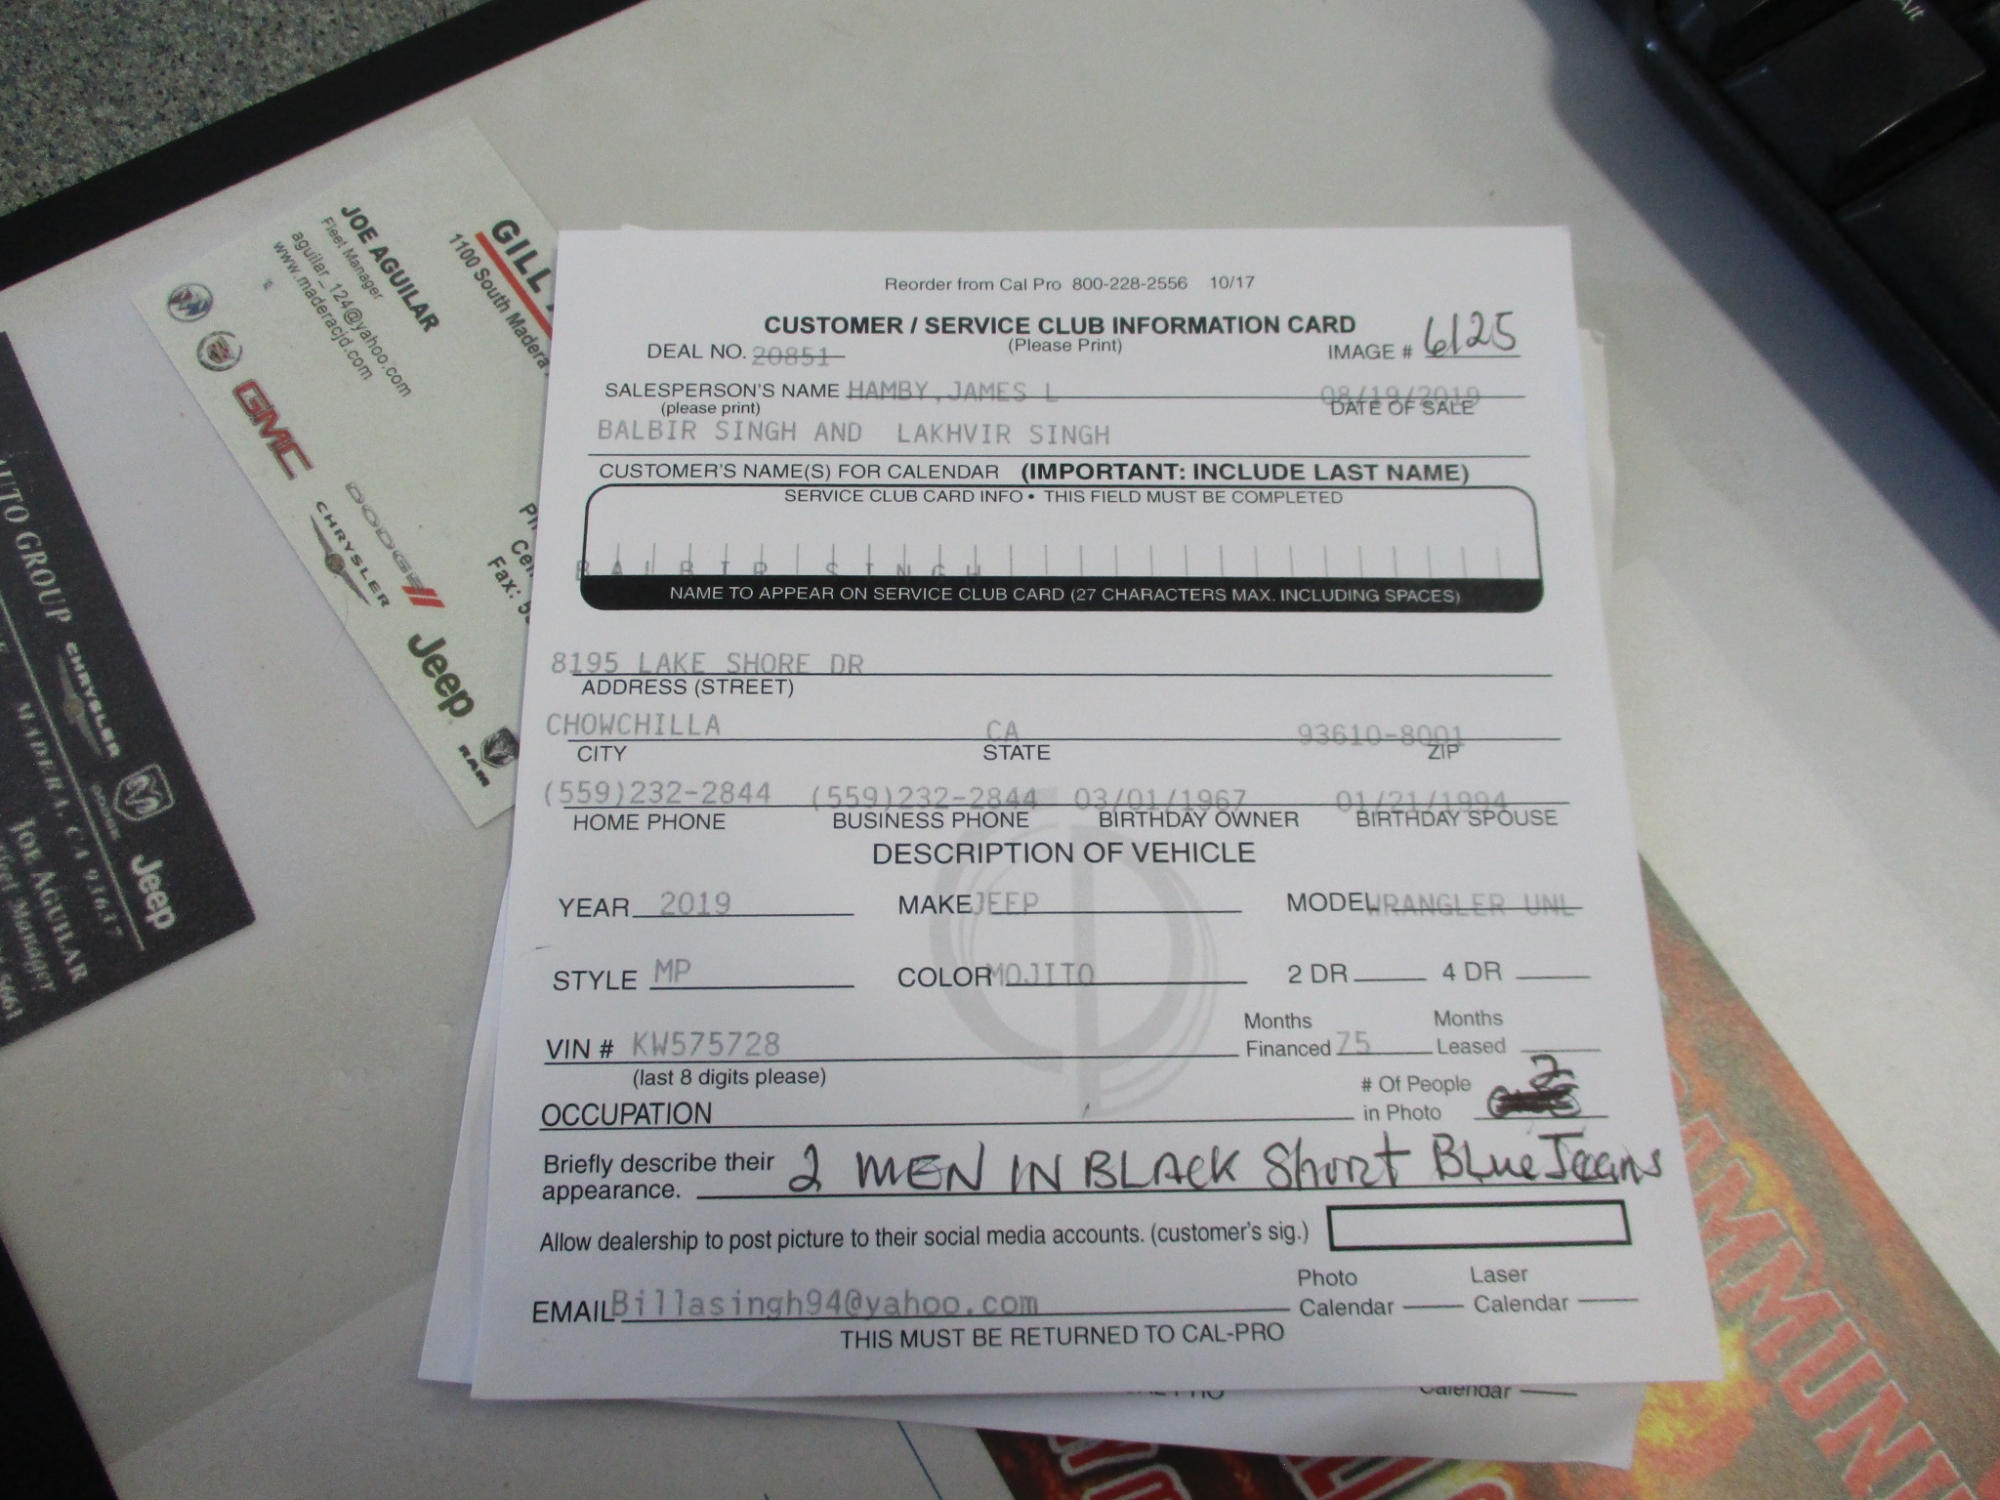 Reorder from Cal Pro 800-228-2556 10/17
CUSTOMER / SERVICE CLUB INFORMATION CARD
(Please Print)
DEAL NO. 20851
IMAGE # 6125
SALESPERSON'S NAME HAMBY, JAMES L 08/19/2019
(please print) DATE OF SALE
BALBIR SINGH AND LAKHVIR SINGH
CUSTOMER'S NAME(S) FOR CALENDAR (IMPORTANT: INCLUDE LAST NAME)
SERVICE CLUB CARD INFO • THIS FIELD MUST BE COMPLETED
BALBIR SINGH
NAME TO APPEAR ON SERVICE CLUB CARD (27 CHARACTERS MAX. INCLUDING SPACES)
8195 LAKE SHORE DR
ADDRESS (STREET)
CHOWCHILLA CA 93610-8001
CITY STATE ZIP
(559)232-2844 (559)232-2844 03/01/1967 01/21/1994
HOME PHONE BUSINESS PHONE BIRTHDAY OWNER BIRTHDAY SPOUSE
DESCRIPTION OF VEHICLE
YEAR 2019 MAKE JEEP MODEL WRANGLER UNL
STYLE MP COLOR MOJITO 2 DR 4 DR
Months Months
VIN # KW575728 Financed 75 Leased
(last 8 digits please)
# Of People
in Photo 2
OCCUPATION
Briefly describe their
appearance. 2 MEN IN BLACK Short BLue Jeans
Allow dealership to post picture to their social media accounts. (customer's sig.)
Photo Laser
EMAIL Billasingh94@yahoo.com Calendar Calendar
THIS MUST BE RETURNED TO CAL-PRO
Calendar
JOE AGUILAR
Fleet Manager
aguilar_124@yahoo.com
www.maderacjd.com
GILL
1100 South Madera
Fax:
GMC
DODGE
CHRYSLER
Jeep
RAM
AUTO GROUP
CHRYSLER
DODGE
Jeep
MADERA, CA 93637
JOE AGUILAR
Fleet Manager
Alt